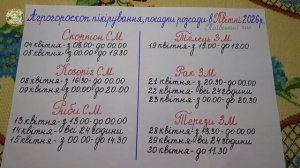 Агрогороскоп пікірування, посадки розсади в Квітні 2026 р.
Київський час
Скорпіон С.М.
04 квітня - з 08.00 - до 00.00
05 квітня - з 00.00 - до 19.30
Козоріг С.М.
08 квітня - з 16.30 - до 00.00
09 квітня - з 00.00 до 20.00
Риби С.М.
13 квітня - з 13.00 - до 00.00
14 квітня - всі 24 години
15 квітня - з 00.00 - до 14.30
Телець З.М.
19 квітня - з 15.00 - до 18.00
Рак З.М.
21 квітня - з 20.30 - до 00.00
22 квітня - всі 24 години
23 квітня - з 00.00 - до 20.30
Терези З.М.
28 квітня - з 13.30 - до 00.00
29 квітня - всі 24 години
30 квітня - до 11.30